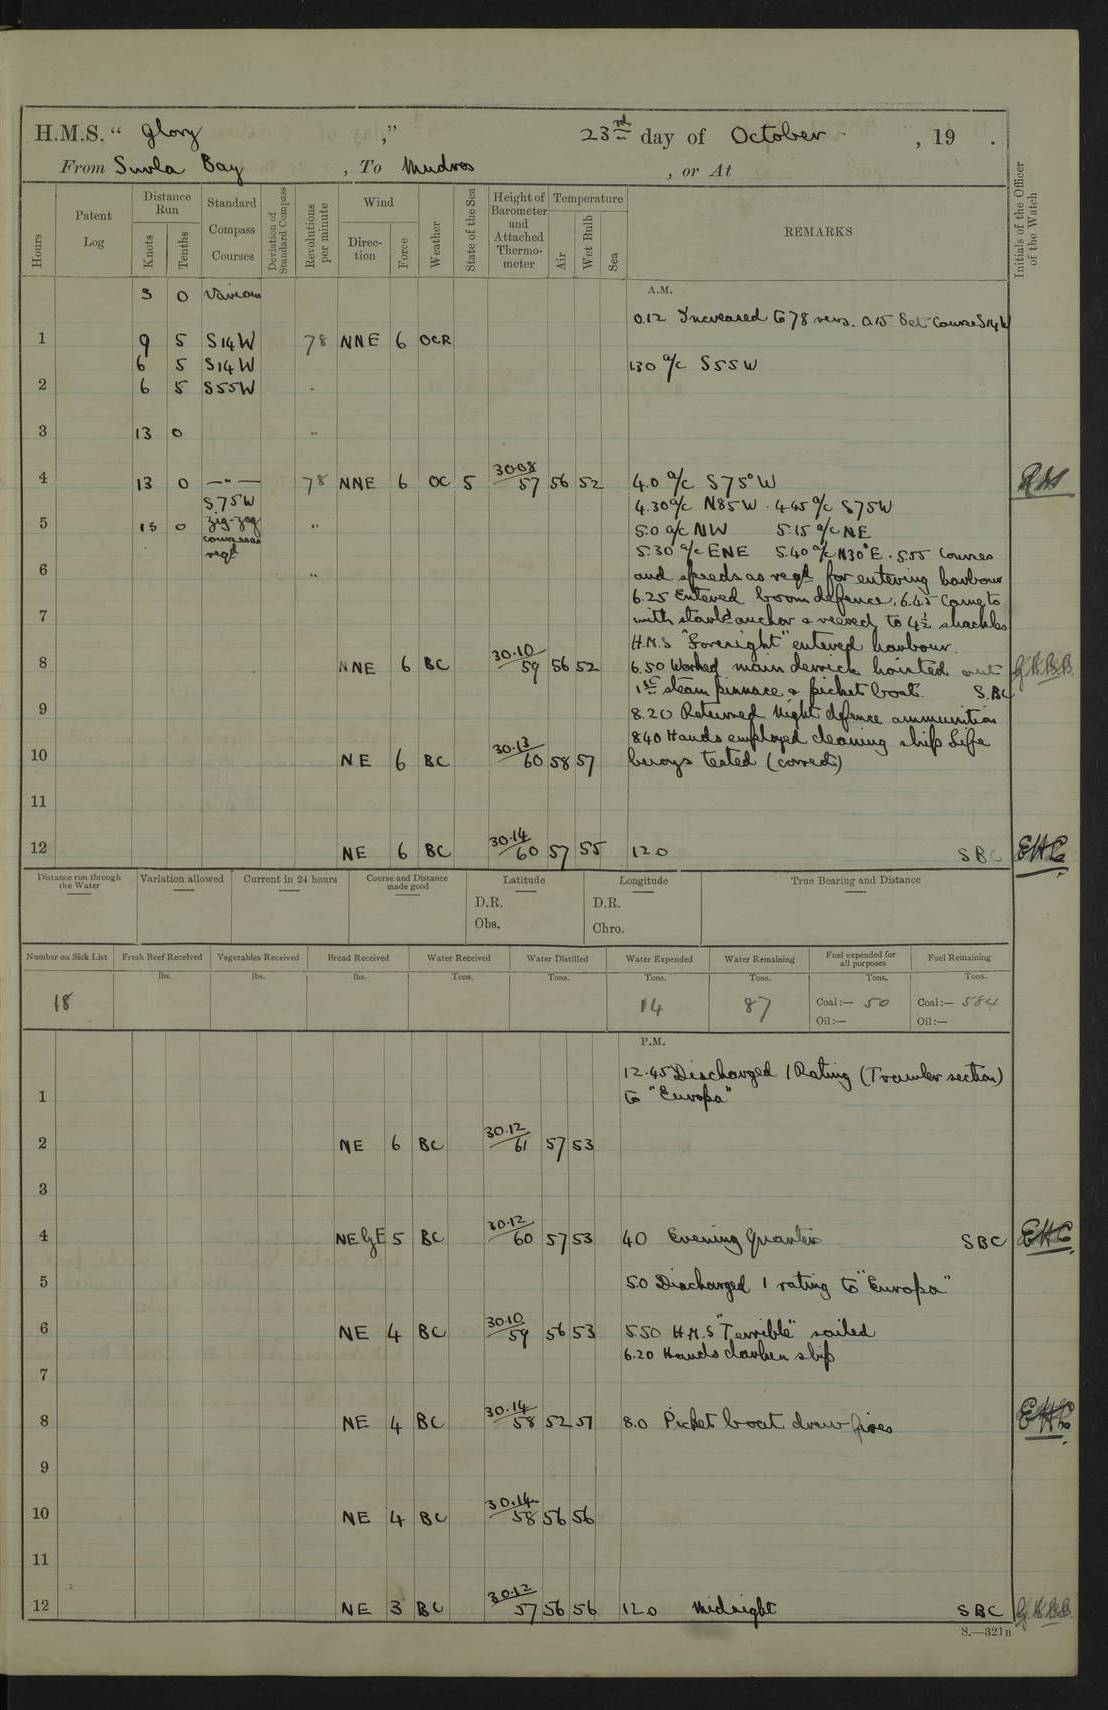 H.M.S. " Glory ," 23rd day of October , 19 .
From Suvla Bay , To Mudros , or At
Hours Patent Log Distance Run Knots Tenths Standard Compass Courses Deviation of Standard Compass Revolutions per minute Wind Direction Force Weather State of the Sea Height of Barometer and Attached Thermometer Temperature Air Wet Bulb Sea REMARKS Initials of the Officer of the Watch
A.M.
3 0 Various
0.12 Increased to 78 revs. 0.15 Set Course S14W
1 9 5 S14W 78 NNE 6 OCR
6 5 S14W 1.30 a/c S55W
2 6 5 S55W "
3 13 0 "
4 13 0 —"— 78 NNE 6 OC 5 30.08/57 56 52 4.0 a/c S75°W
S75W 4.30 a/c N85W . 4.45 a/c S75W
5 13 0 zig-zag courses reqd " 5.0 a/c NW 5.15 a/c NE
5.30 a/c ENE 5.40 a/c N30°E . 5.55 Courses
6 " and speeds as reqd for entering harbour
6.25 Entered boom defence. 6.45 Came to
7 with starbd anchor & veered to 4½ shackles
H.M.S "Foresight" entered harbour.
8 NNE 6 BC 30.10/59 56 52 6.50 Worked main derrick hoisted out
1st steam pinnace & picket boat. SBC
9 8.20 Returned Night defence ammunition
8.40 Hands employed cleaning ship Life
10 NE 6 BC 30.13/60 58 57 buoys tested (correct)
11
12 NE 6 BC 30.14/60 57 55 12.0 SBC EHC
Distance run through the Water Variation allowed Current in 24 hours Course and Distance made good Latitude Longitude True Bearing and Distance
D.R. D.R.
Obs. Chro.
Number on Sick List Fresh Beef Received Vegetables Received Bread Received Water Received Water Distilled Water Expended Water Remaining Fuel expended for all purposes Fuel Remaining
lbs. lbs. lbs. Tons. Tons. Tons. Tons. Tons. Tons.
18 14 87 Coal:— 50 Coal:— 584
Oil:— Oil:—
P.M.
12.45 Discharged 1 Rating (Trawler section)
1 to "Europa"
2 NE 6 BC 30.12/61 57 53
3
4 NEbyE 5 BC 30.12/60 57 53 4.0 Evening Quarters SBC EHC
5 5.0 Discharged 1 rating to "Europa"
6 NE 4 BC 30.10/59 56 53 5.50 H.M.S "Terrible" sailed
6.20 Hands darken ship
7
8 NE 4 BC 30.14/58 52 51 8.0 Picket boat drew fires EHC
9
10 NE 4 BC 30.14/58 56 56
11
12 NE 3 BC 30.12/57 56 56 12.0 Midnight SBC
S.—321B